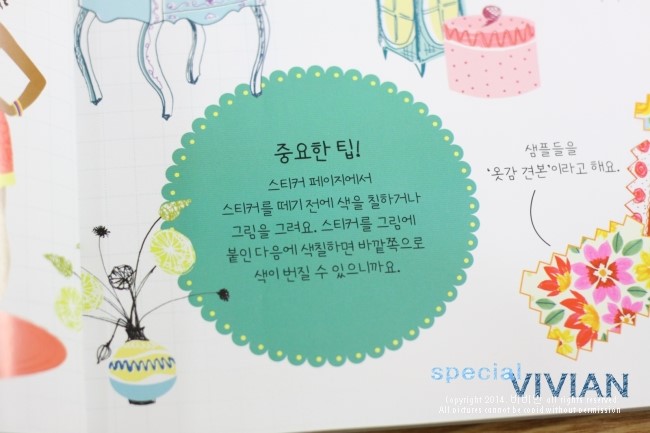 중요한 팁!
스티커 페이지에서
스티커를 떼기 전에 색을 칠하거나
그림을 그려요. 스티커를 그림에
붙인 다음에 색칠하면 바깥쪽으로
색이 번질 수 있으니까요.
샘플들을
'옷감 견본'이라고 해요.
special VIVIAN
copyright 2014. 비비안 all rights reserved
All pictures cannot be copied without permission